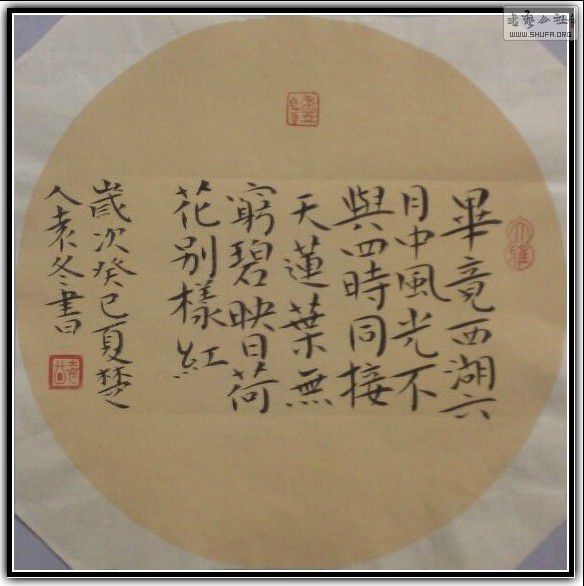 畢竟西湖六
月中風光不
與四時同接
天蓮葉無
窮碧映日荷
花别樣紅
歲次癸巳夏楚
人袁冬書
WWW.SHUFA.ORG